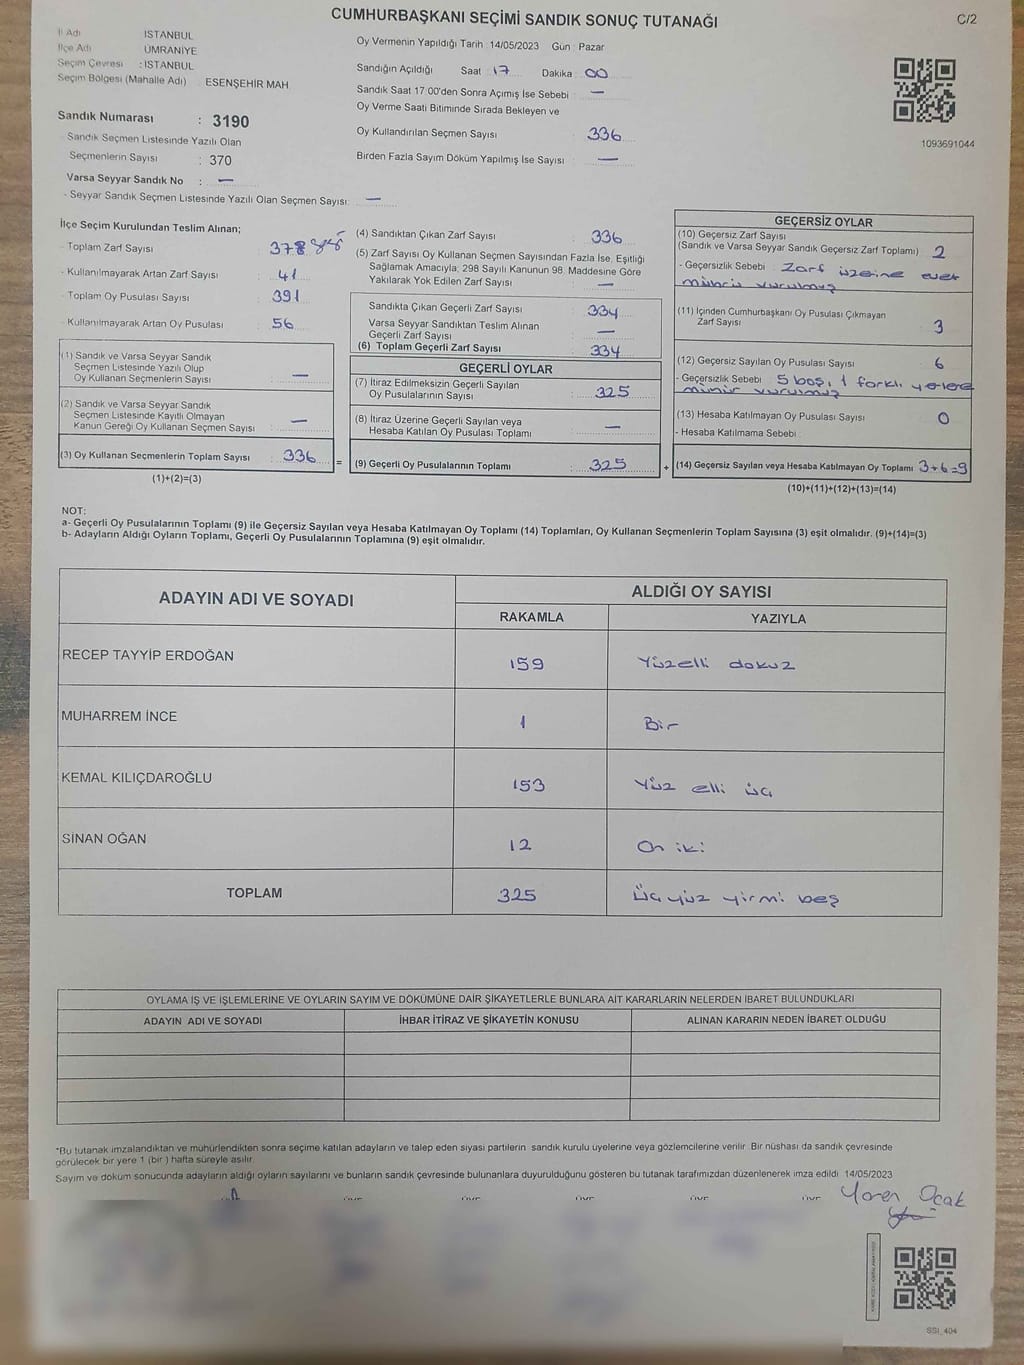 CUMHURBAŞKANI SEÇİMİ SANDIK SONUÇ TUTANAĞI
C/2
İl Adı İSTANBUL
İlçe Adı ÜMRANİYE
Seçim Çevresi : İSTANBUL
Seçim Bölgesi (Mahalle Adı) ESENŞEHİR MAH
Sandık Numarası : 3190
- Sandık Seçmen Listesinde Yazılı Olan
Seçmenlerin Sayısı : 370
Varsa Seyyar Sandık No : —
- Seyyar Sandık Seçmen Listesinde Yazılı Olan Seçmen Sayısı: —
Oy Vermenin Yapıldığı Tarih : 14/05/2023 Gün : Pazar
Sandığın Açıldığı Saat : 17 Dakika : 00
Sandık Saat 17:00'den Sonra Açımış İse Sebebi : —
Oy Verme Saati Bitiminde Sırada Bekleyen ve
Oy Kullandırılan Seçmen Sayısı : 336
Birden Fazla Sayım Döküm Yapılmış İse Sayısı : —
1093691044
İlçe Seçim Kurulundan Teslim Alınan;
- Toplam Zarf Sayısı : 378
- Kullanılmayarak Artan Zarf Sayısı : 41
- Toplam Oy Pusulası Sayısı : 391
- Kullanılmayarak Artan Oy Pusulası : 56
(1) Sandık ve Varsa Seyyar Sandık
Seçmen Listesinde Yazılı Olup
Oy Kullanan Seçmenlerin Sayısı : —
(2) Sandık ve Varsa Seyyar Sandık
Seçmen Listesinde Kayıtlı Olmayan
Kanun Gereği Oy Kullanan Seçmen Sayısı : —
(3) Oy Kullanan Seçmenlerin Toplam Sayısı : 336 =
(1)+(2)=(3)
(4) Sandıktan Çıkan Zarf Sayısı : 336
(5) Zarf Sayısı Oy Kullanan Seçmen Sayısından Fazla İse, Eşitliği
Sağlamak Amacıyla; 298 Sayılı Kanunun 98. Maddesine Göre
Yakılarak Yok Edilen Zarf Sayısı : —
Sandıkta Çıkan Geçerli Zarf Sayısı : 334
Varsa Seyyar Sandıktan Teslim Alınan
Geçerli Zarf Sayısı : —
(6) Toplam Geçerli Zarf Sayısı : 334
GEÇERLİ OYLAR
(7) İtiraz Edilmeksizin Geçerli Sayılan
Oy Pusulalarının Sayısı : 325
(8) İtiraz Üzerine Geçerli Sayılan veya
Hesaba Katılan Oy Pusulası Toplamı : —
(9) Geçerli Oy Pusulalarının Toplamı : 325 +
GEÇERSİZ OYLAR
(10) Geçersiz Zarf Sayısı
(Sandık ve Varsa Seyyar Sandık Geçersiz Zarf Toplamı) : 2
- Geçersizlik Sebebi : Zarf üzeine evet
mührü vurulmuş
(11) İçinden Cumhurbaşkanı Oy Pusulası Çıkmayan
Zarf Sayısı : 3
(12) Geçersiz Sayılan Oy Pusulası Sayısı : 6
- Geçersizlik Sebebi : 5 boş, 1 farklı yerlere
mühür vurulmuş
(13) Hesaba Katılmayan Oy Pusulası Sayısı : 0
- Hesaba Katılmama Sebebi :
(14) Geçersiz Sayılan veya Hesaba Katılmayan Oy Toplamı : 3+6=9
(10)+(11)+(12)+(13)=(14)
NOT:
a- Geçerli Oy Pusulalarının Toplamı (9) ile Geçersiz Sayılan veya Hesaba Katılmayan Oy Toplamı (14) Toplamları, Oy Kullanan Seçmenlerin Toplam Sayısına (3) eşit olmalıdır. (9)+(14)=(3)
b- Adayların Aldığı Oyların Toplamı, Geçerli Oy Pusulalarının Toplamına (9) eşit olmalıdır.
ADAYIN ADI VE SOYADI ALDIĞI OY SAYISI
RAKAMLA YAZIYLA
RECEP TAYYİP ERDOĞAN 159 Yüzelli dokuz
MUHARREM İNCE 1 Bir
KEMAL KILIÇDAROĞLU 153 Yüz elli üç
SİNAN OĞAN 12 On iki
TOPLAM 325 Üçyüz yirmi beş
OYLAMA İŞ VE İŞLEMLERİNE VE OYLARIN SAYIM VE DÖKÜMÜNE DAİR ŞİKAYETLERLE BUNLARA AİT KARARLARIN NELERDEN İBARET BULUNDUKLARI
ADAYIN ADI VE SOYADI İHBAR İTİRAZ VE ŞİKAYETİN KONUSU ALINAN KARARIN NEDEN İBARET OLDUĞU
*Bu tutanak imzalandıktan ve mühürlendikten sonra seçime katılan adayların ve talep eden siyasi partilerin sandık kurulu üyelerine veya gözlemcilerine verilir. Bir nüshası da sandık çevresinde
görülecek bir yere 1 (bir ) hafta süreyle asılır.
Sayım ve döküm sonucunda adayların aldığı oyların sayılarını ve bunların sandık çevresinde bulunanlara duyurulduğunu gösteren bu tutanak tarafımızdan düzenlenerek imza edildi. 14/05/2023
Yaren Ocak
SSI_404